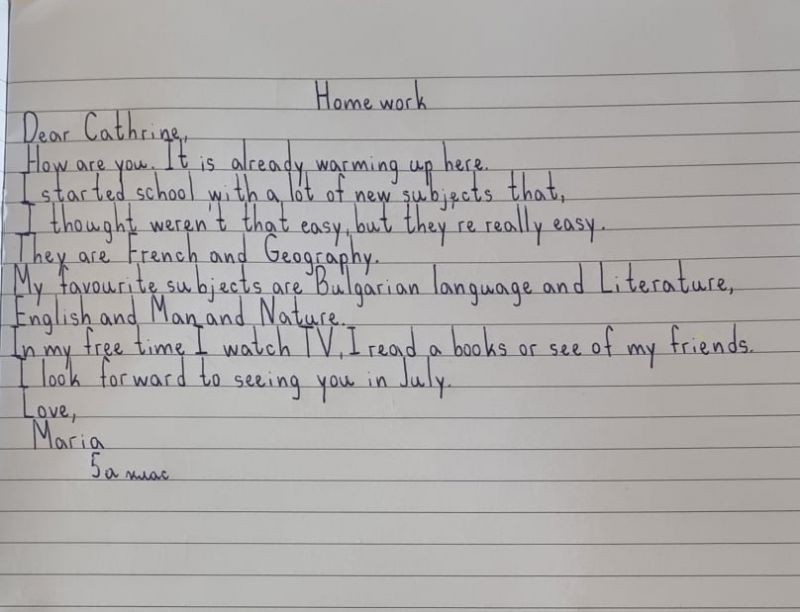 Home work
Dear Cathrine,
How are you. It is already warming up here.
I started school with a lot of new subjects that,
I thought weren't that easy, but they re really easy.
They are French and Geography.
My favourite subjects are Bulgarian language and Literature,
English and Man and Nature.
In my free time I watch TV, I read a books or see of my friends.
I look forward to seeing you in July.
Love,
Maria
5а клас